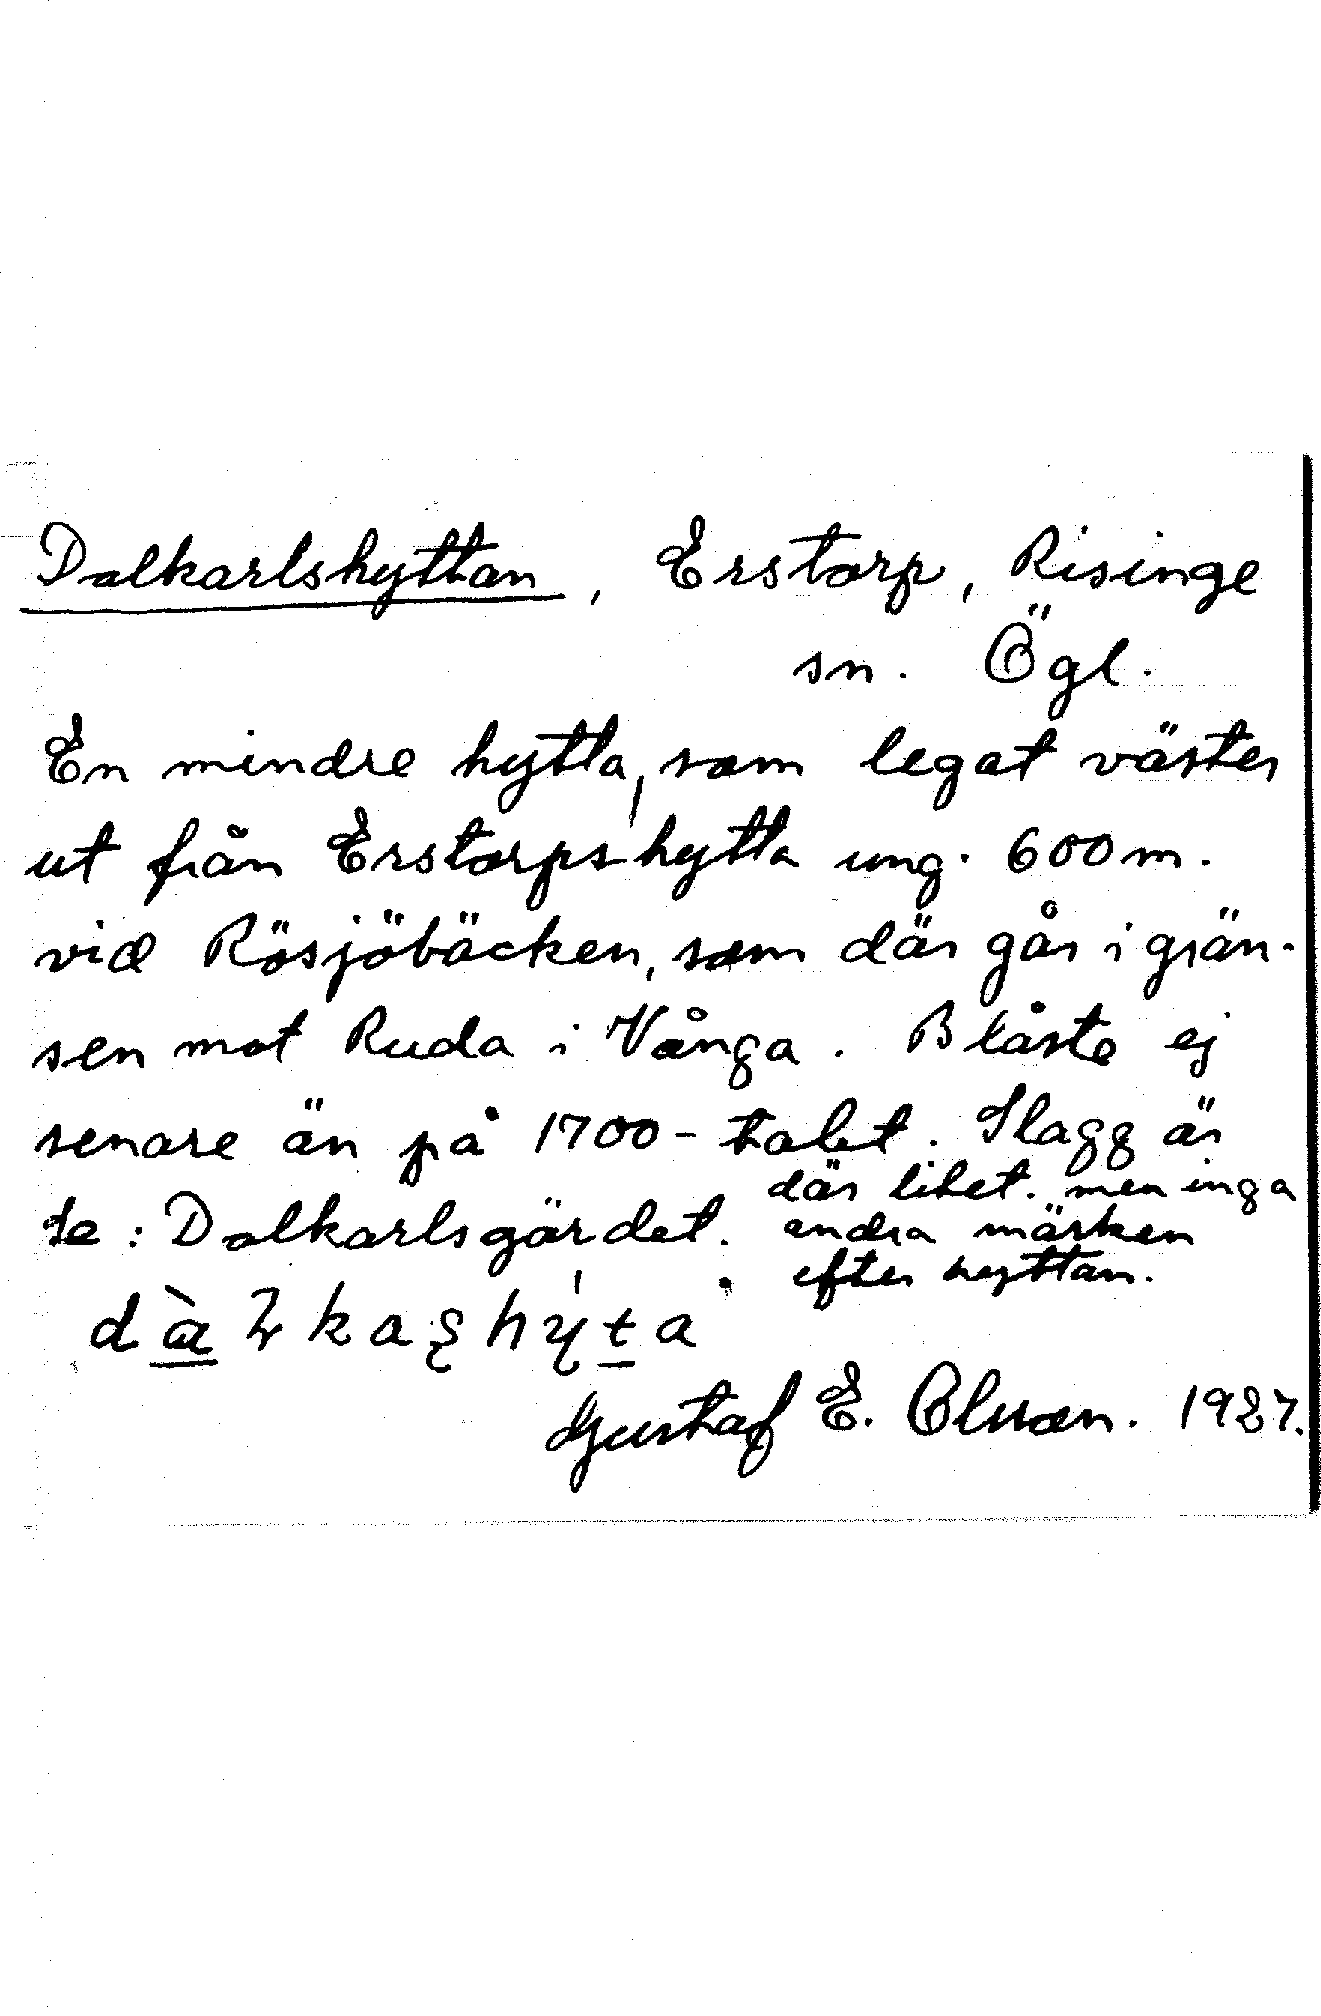 Dalkarlshyttan, Erstorp, Risinge
sn. Ögl.
En mindre hytta, som legat väster
ut från Erstorpshytta ung. 600 m.
vid Rösjöbäcken, som där går i grän-
sen mot Ruda i Vånga. Blåste ej
senare än på 1700-talet. Slagg är
där litet. men inga
andra märken
efter hyttan.
Se: Dalkarlsgärdet.
Gustaf E. Olsson. 1927.